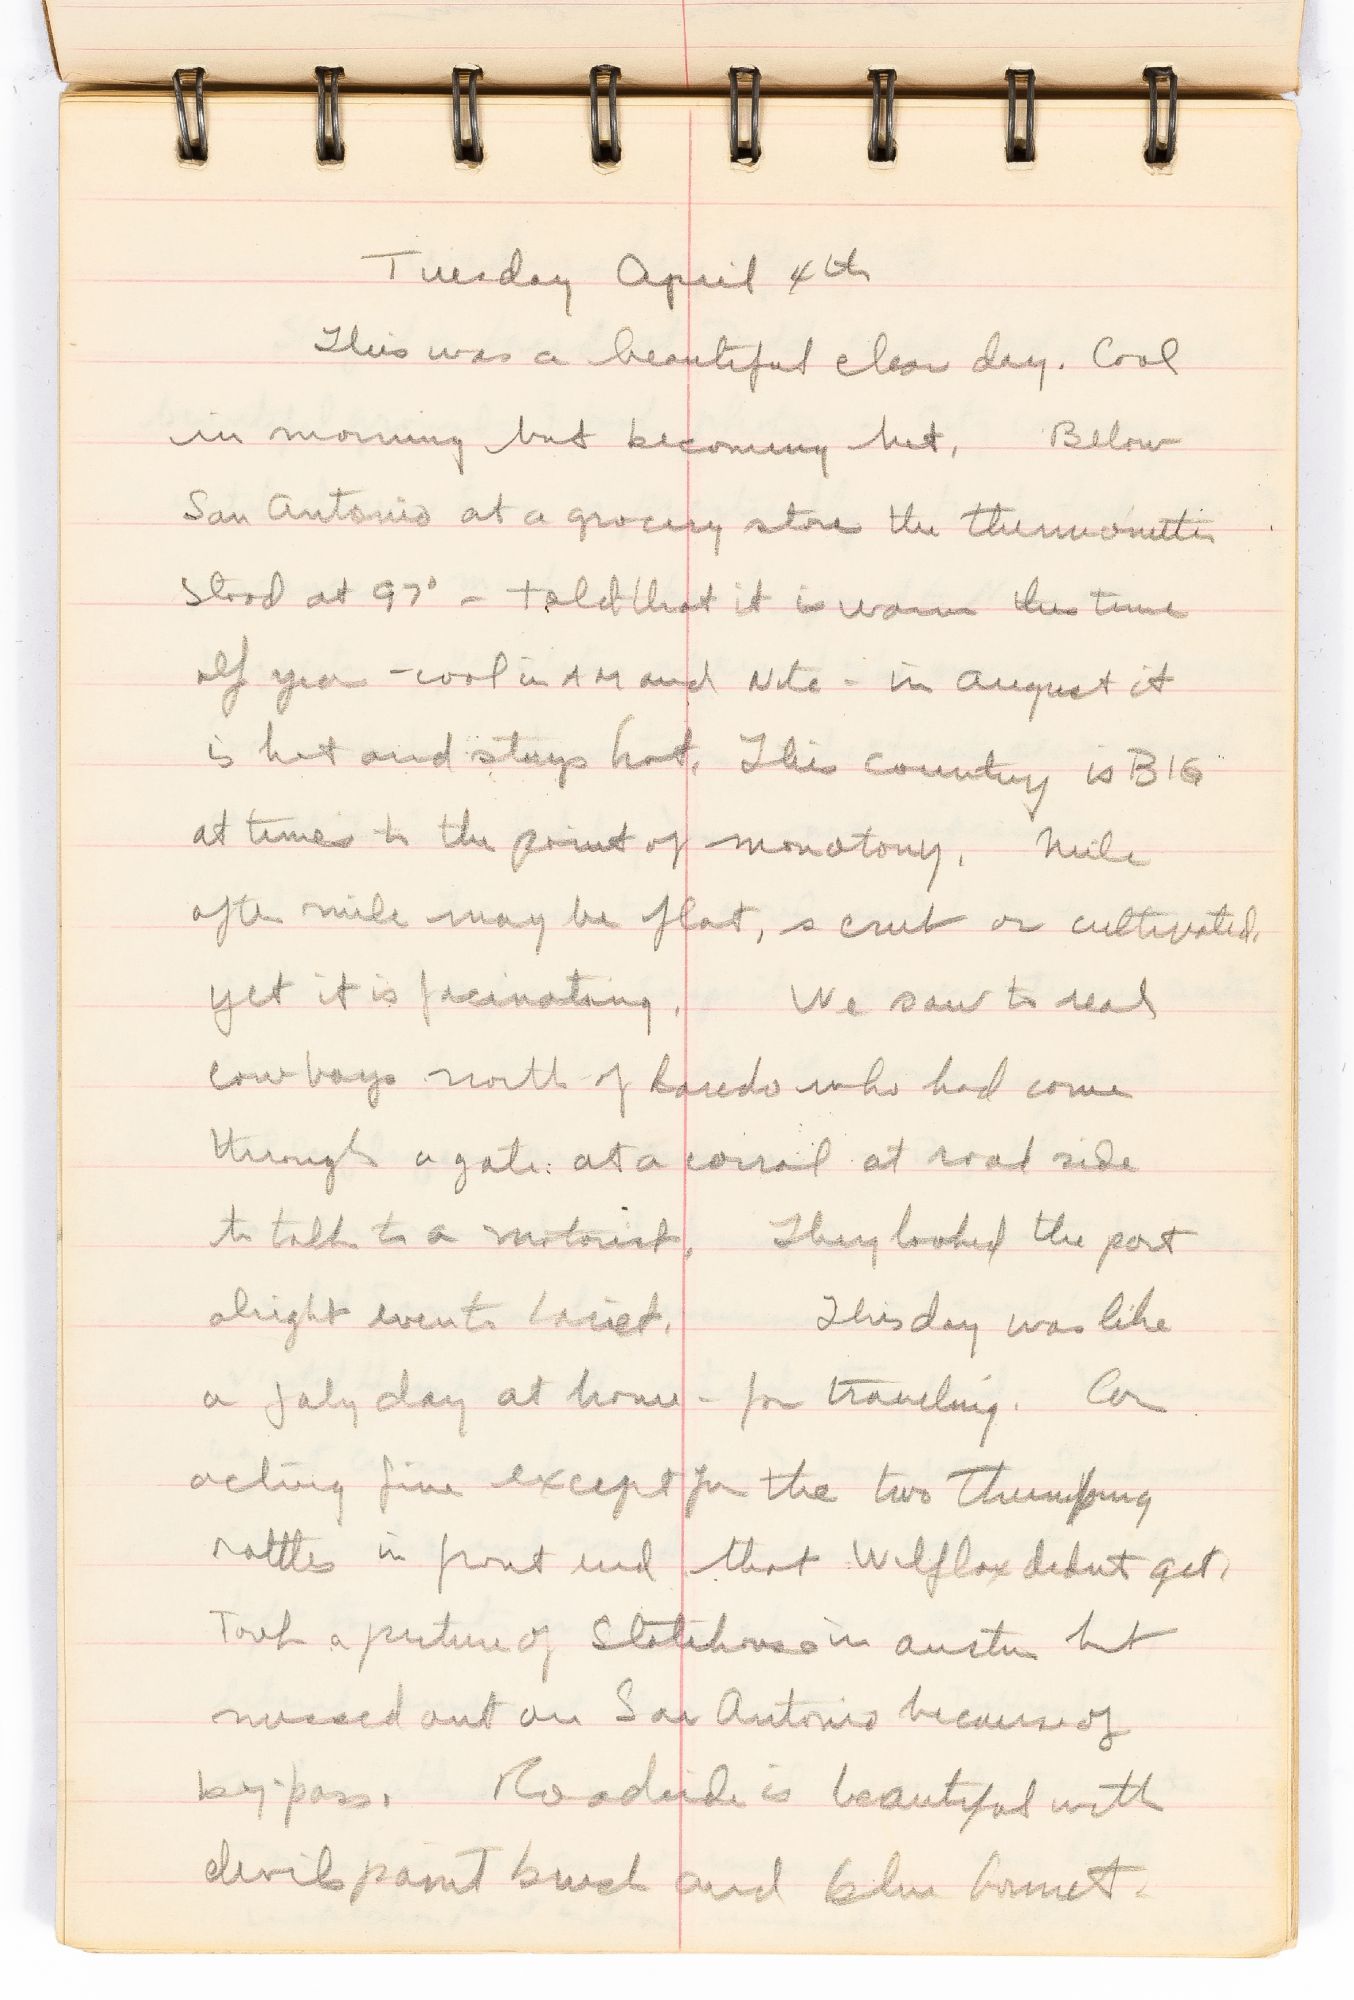 Tuesday April 4th
This was a beautiful clear day. Cool
in morning but becoming hot. Below
San Antonio at a grocery store the thermometer
stood at 97° - told that it is warm this time
of year - cool in AM and Nite - in August it
is hot and stays hot. This country is BIG
at times to the point of monotony. Mile
after mile may be flat, scrub or cultivated.
yet it is facinating. We saw to real
cowboys north of Laredo who had come
through a gate at a corral at road side
to talk to a motorist. They looked the part
alright even to
This day was like
a July day at home - for traveling. Car
acting fine except for the two thumping
rattles in front end that didnt get.
Took a picture of Statehouse in Austin but
missed out on San Antonio because of
by-pass. Roadside is beautiful with
devils paint brush and blue bonnet.